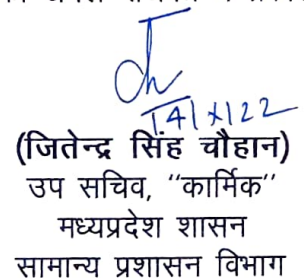 14/X/22
(जितेन्द्र सिंह चौहान)
उप सचिव, ‘‘कार्मिक’’
मध्यप्रदेश शासन
सामान्य प्रशासन विभाग